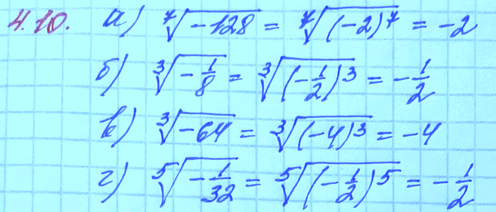 4.10. а) ⁷√(-128) = ⁷√((-2)⁷) = -2
б) ³√(-1/8) = ³√((-1/2)³) = -1/2
в) ³√(-64) = ³√((-4)³) = -4
г) ⁵√(-1/32) = ⁵√((-1/2)⁵) = -1/2